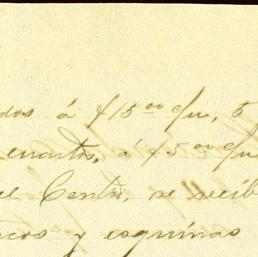 dos á $15 00 c/u, 5
cuartos, á $5 00 c/u
el Centro, se recib
cos y esquinas